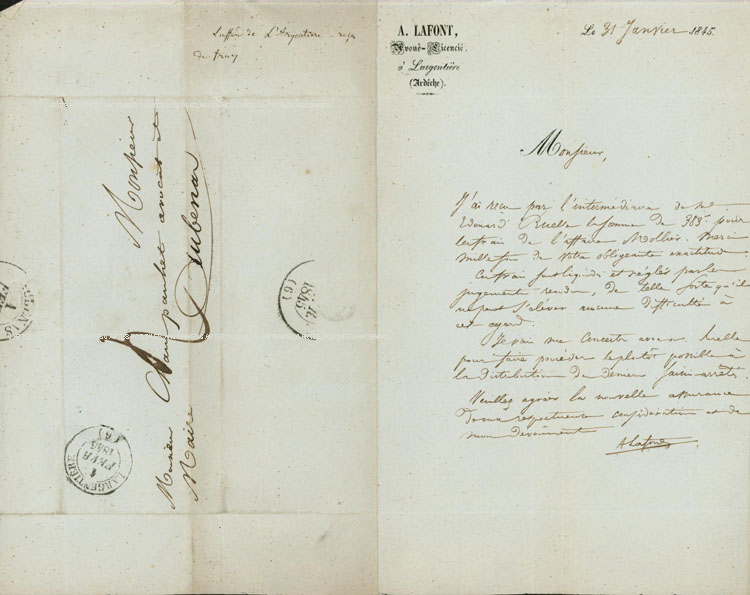 Laffon de L'Argentière - reçu
de frais
Monsieur
Monsieur Champanhet avocat et
Maire d'Aubenas
LARGENTIÈRE
1
FEVR
1845
(6)
AUBENAS
1
FEV
1845
(6)
A. LAFONT,
Avoué-Licencié
à Largentière
(Ardèche).
Le 31 Janvier 1845.
Monsieur,
J'ai reçu par l'intermédiaire de Me
Edouard Ruelle la somme de 383f pour
les frais de l'affaire Mollier. Merci
mille fois de votre obligeante exactitude.
Ces frais sont liquidés et réglés par le
jugement rendu, de telle sorte qu'il
ne peut s'élever aucune difficulté à
cet égard.
Je vais me concerter avec Mr Ruelle
pour faire procéder le plutôt possible à
la distribution des deniers saisis-arrêtés.
Veuillez agréer la nouvelle assurance
de ma respectueuse considération et de
mon dévouement
A Lafont